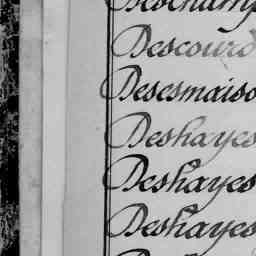 Deschamp
Descourd
Desesmaiso
Deshayes
Deshayes
Deshayes